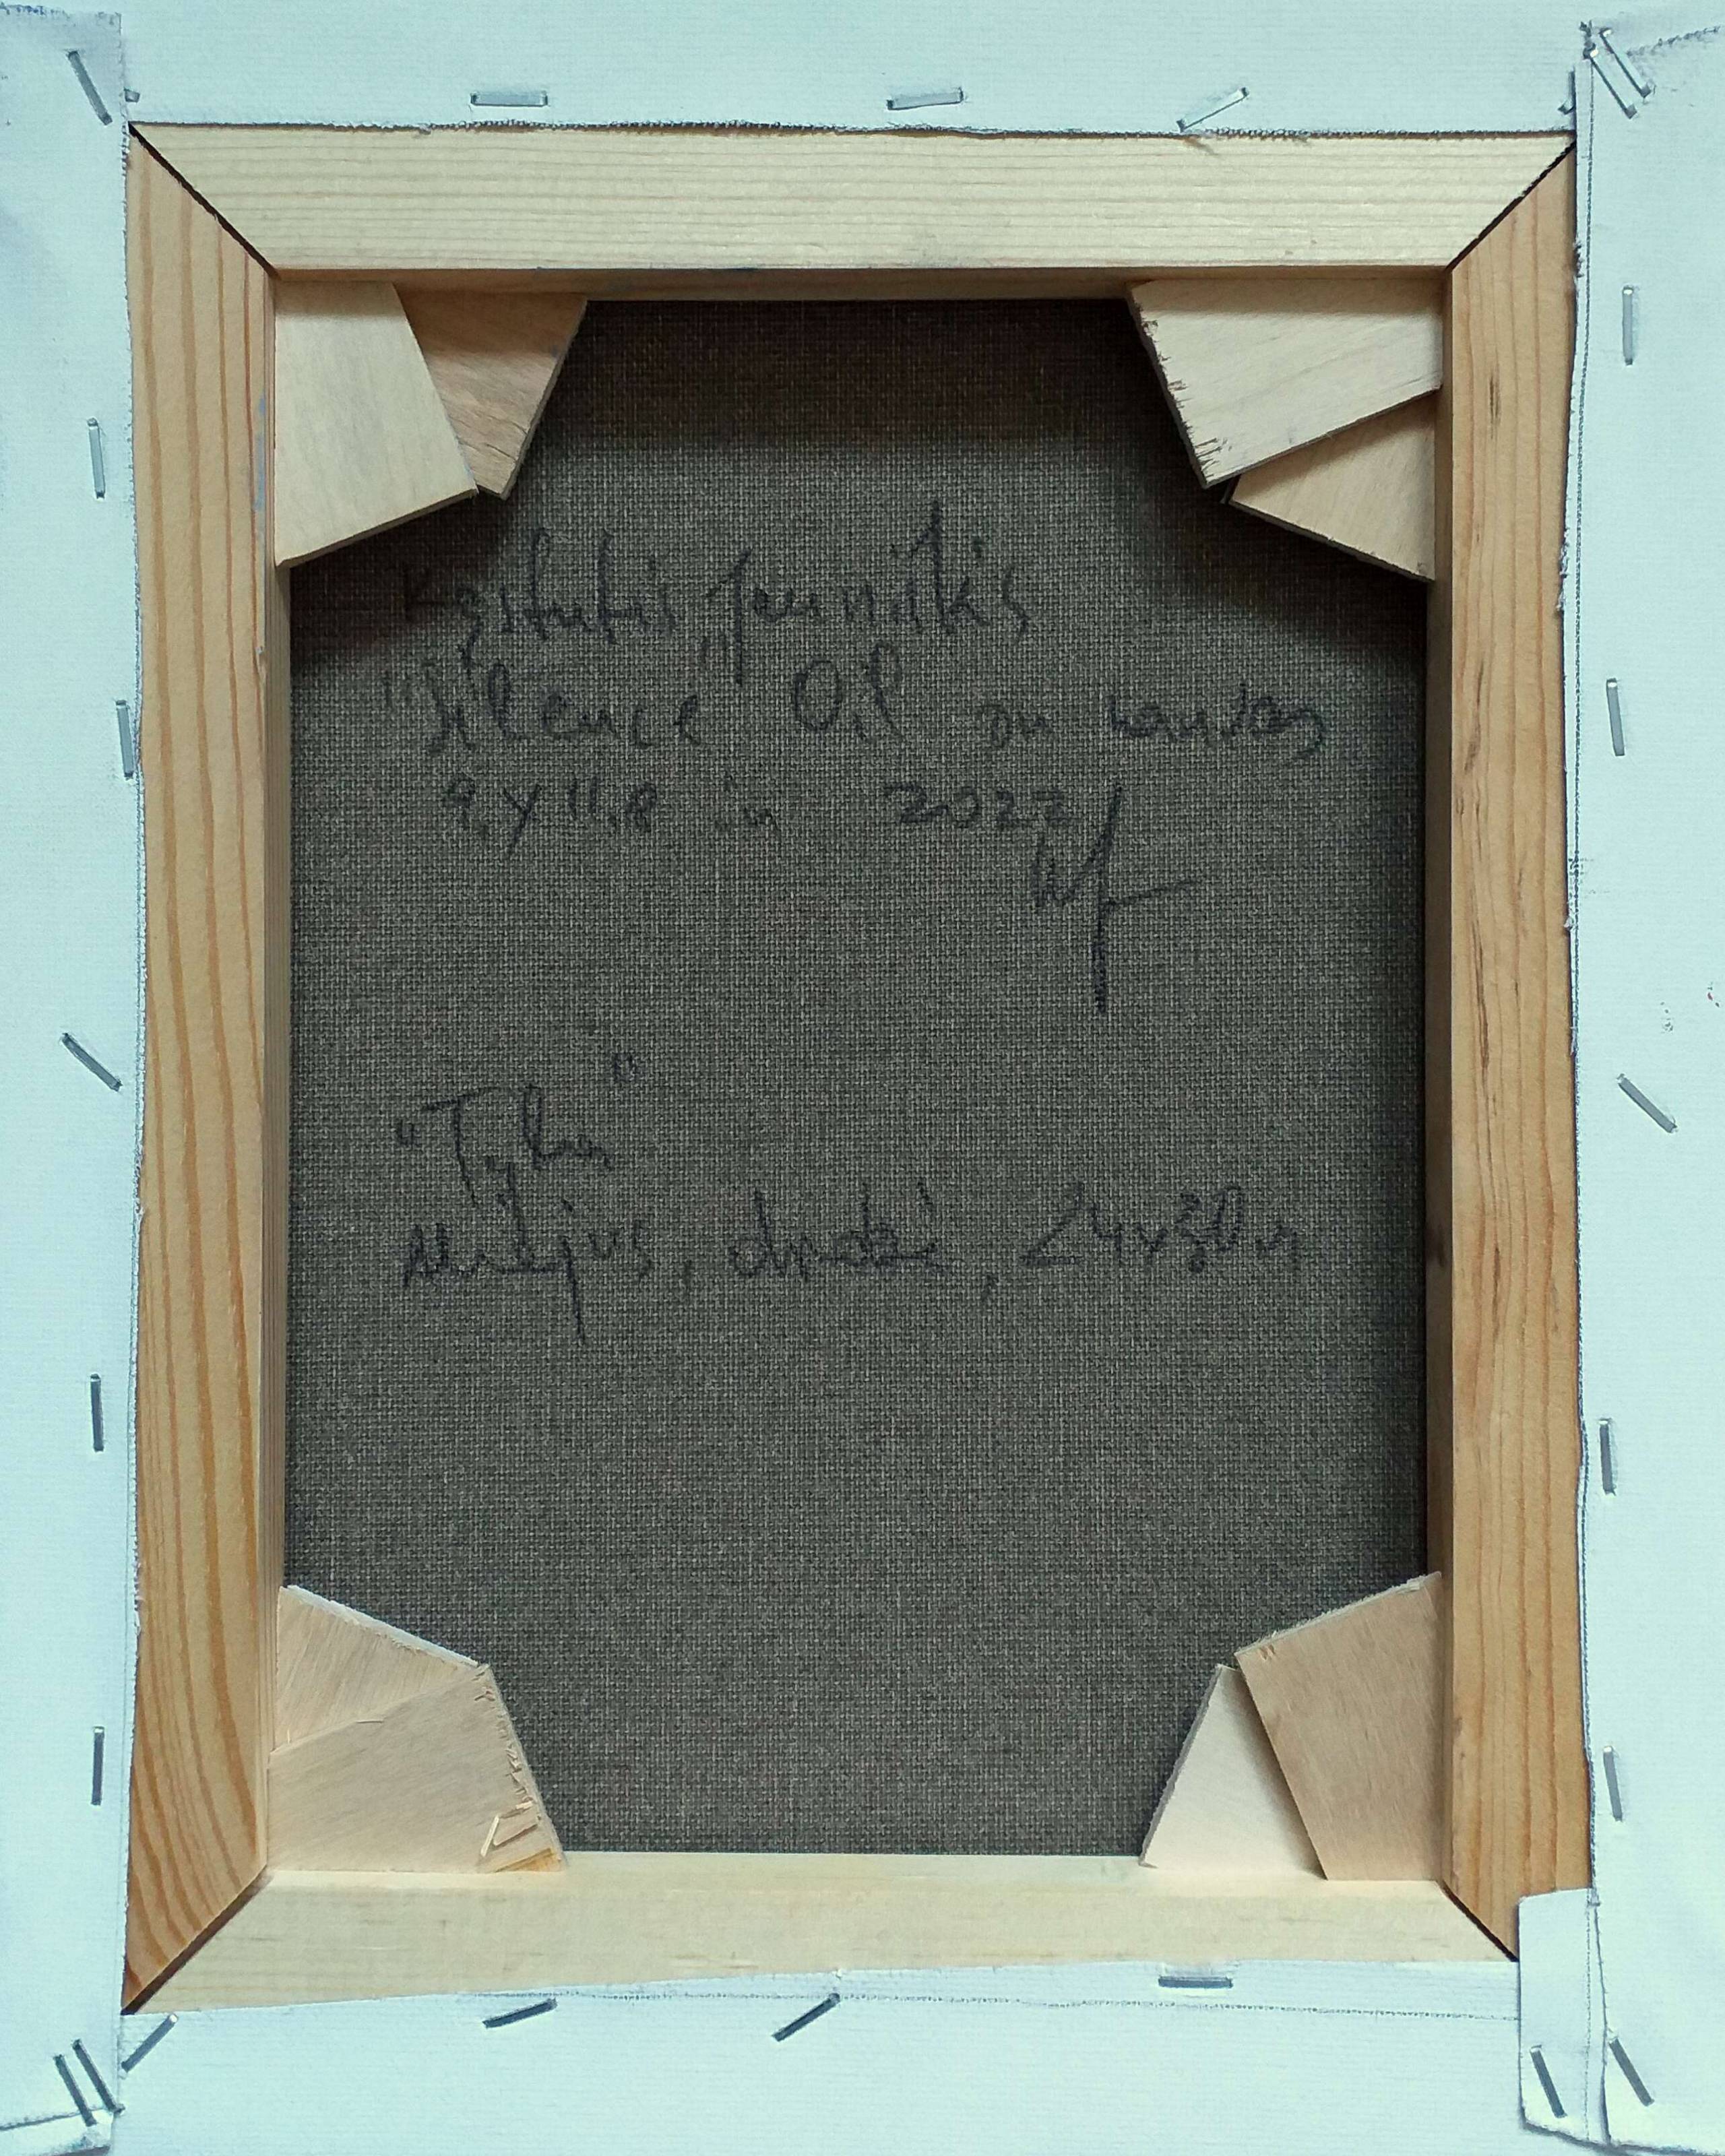 Kęstutis Jauniškis
"Silence" Oil on canvas
9,4x11,8 in 2022
"Tyla"
Aliejus, drobė, 24x30cm